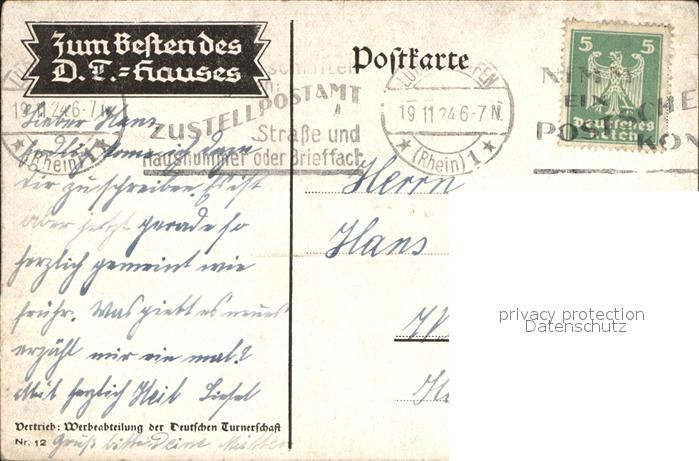 Zum Besten des
D. T.-Hauses
Postkarte
19.11.24 6-7 N.
(Rhein) 1
ZUSTELLPOSTAMT
Straße und
Hausnummer oder Brieffach
19.11.24 6-7 N.
(Rhein) 1
5 5
Deutsches
Reich
EIN
POST
Lieber Hans
dir zu schreiben. Es ist
aber jetzt gerade so
herzlich gemeint wie
früher. Was giebt es neues
erzähl mir ein mal?
Mit herzlich Heil Liesel
Gruß bitte Deine Mutter
Herrn
Hans
privacy protection
Datenschutz
Vertrieb: Werbeabteilung der Deutschen Turnerschaft
Nr. 12